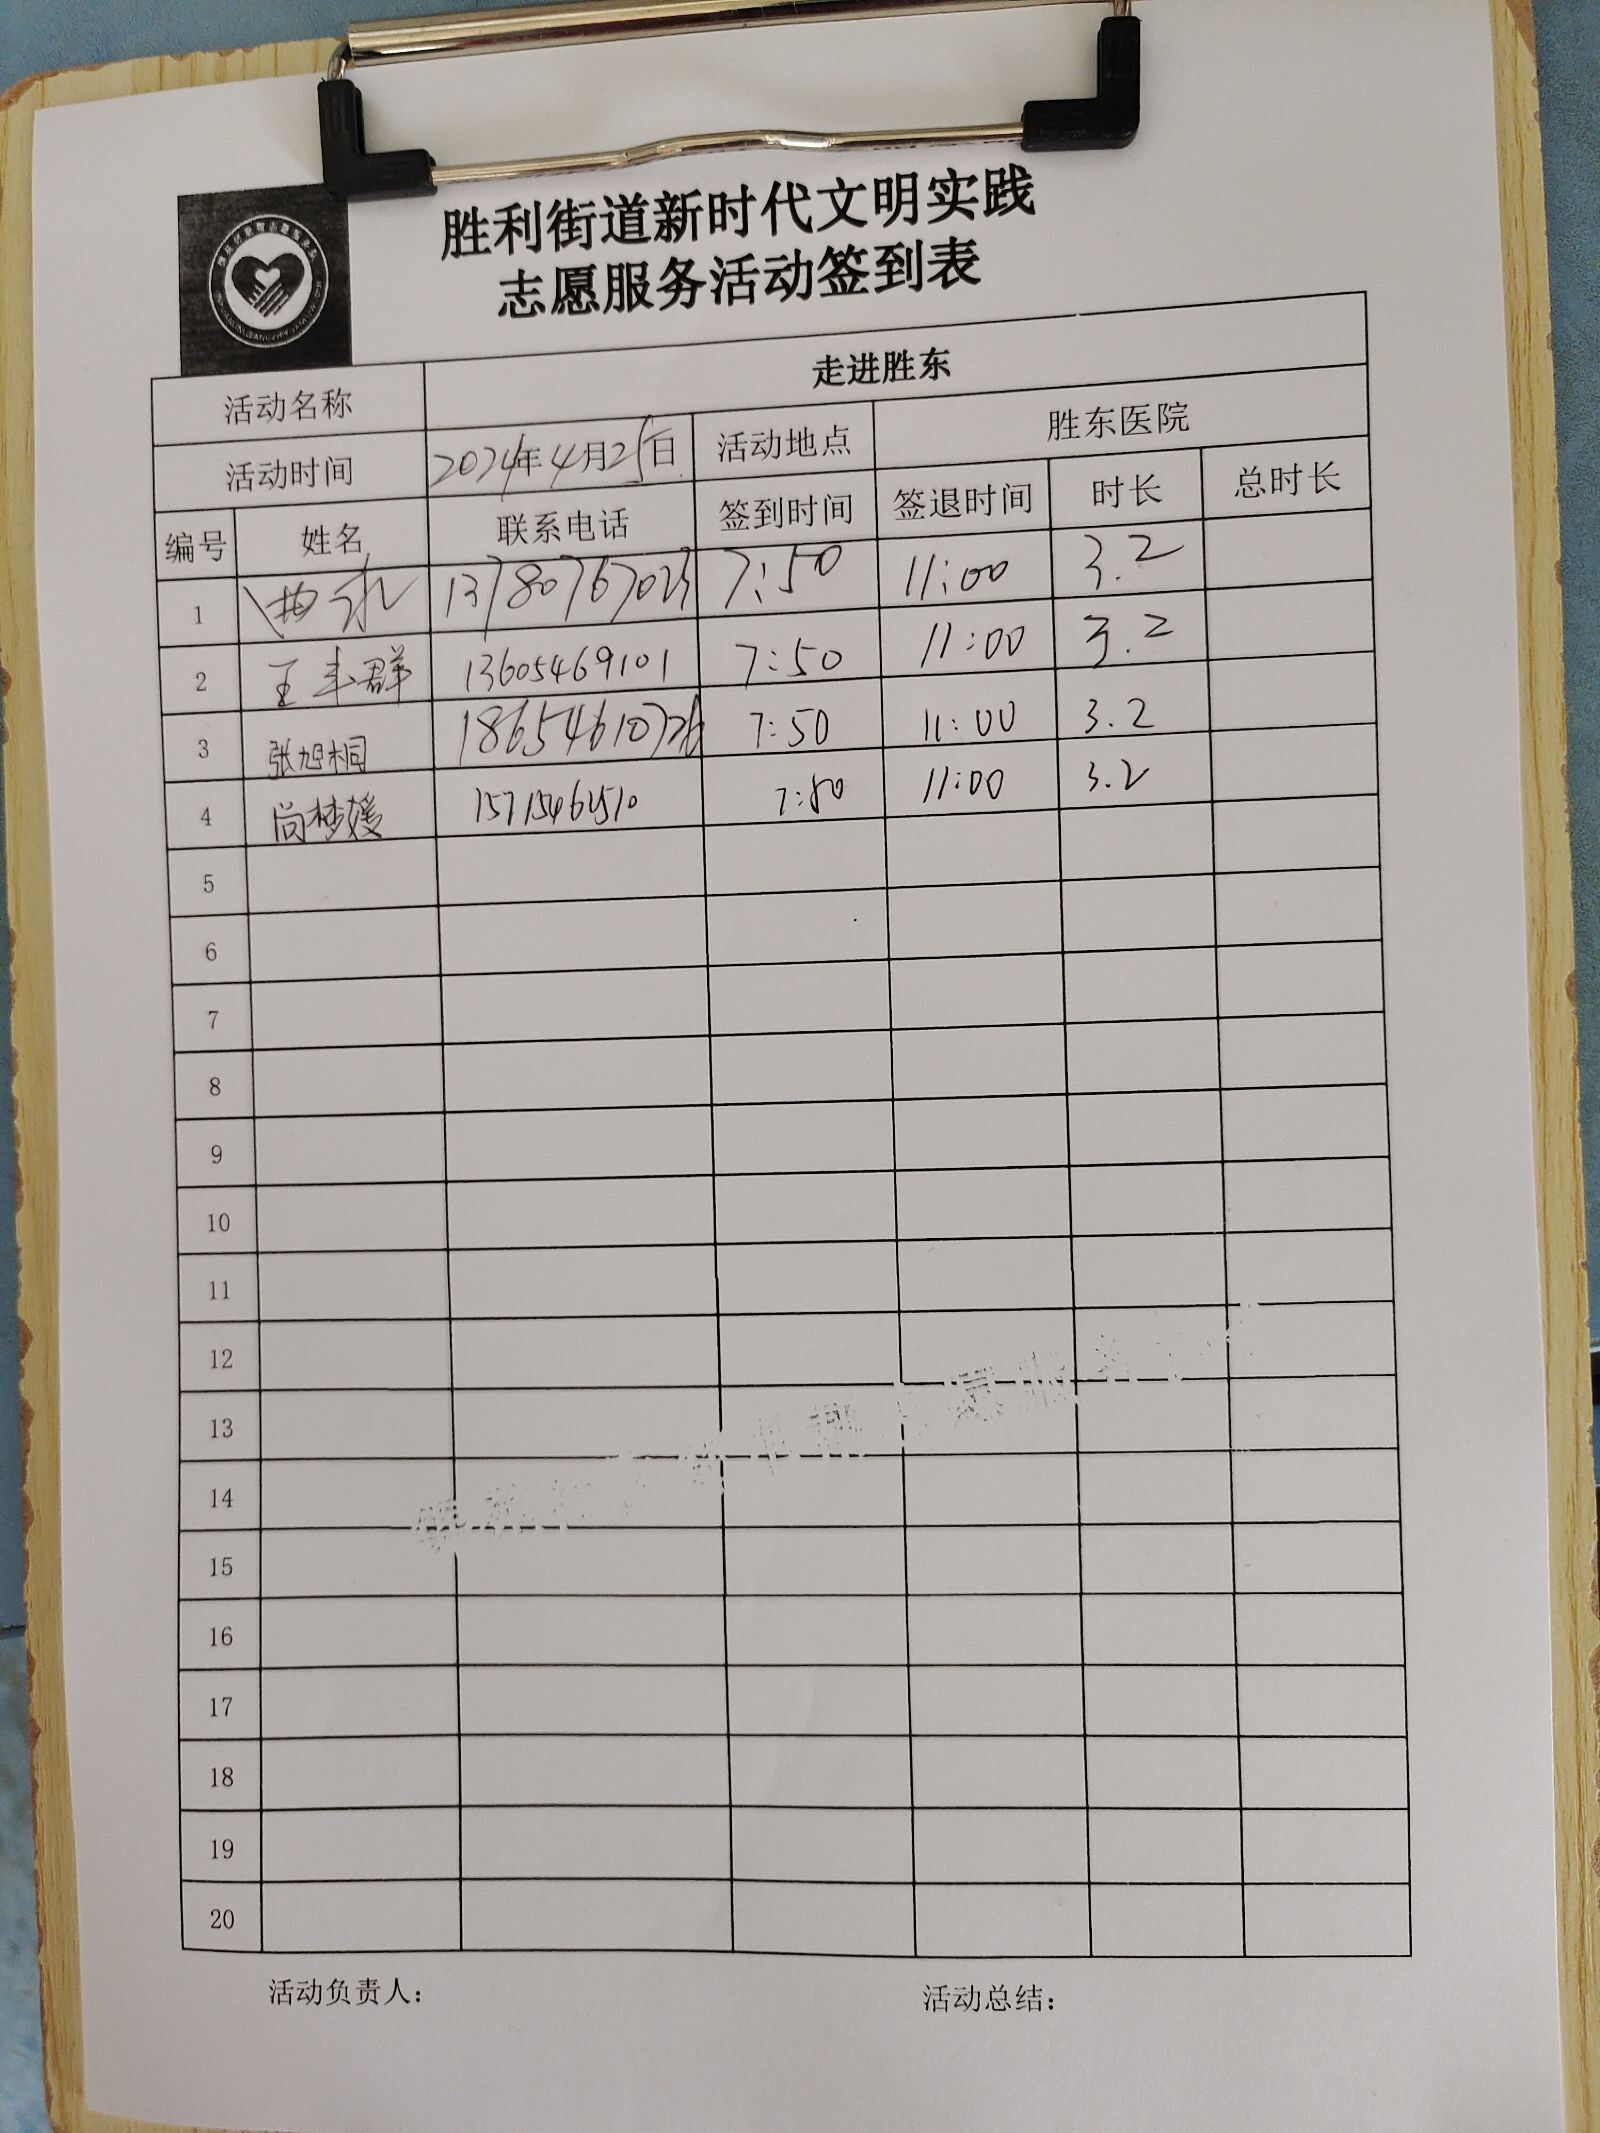 胜利街道新时代文明实践
志愿服务活动签到表
活动名称 走进胜东
活动时间 2024年4月25日 活动地点 胜东医院
编号 姓名 联系电话 签到时间 签退时间 时长 总时长
1 曲永 13780767023 7:50 11:00 3.2
2 王丰群 13605469101 7:50 11:00 3.2
3 张旭桐 18654610726 7:50 11:00 3.2
4 尚梦媛 7:50 11:00 3.2
5
6
7
8
9
10
11
12
13
14
15
16
17
18
19
20
活动负责人： 活动总结：